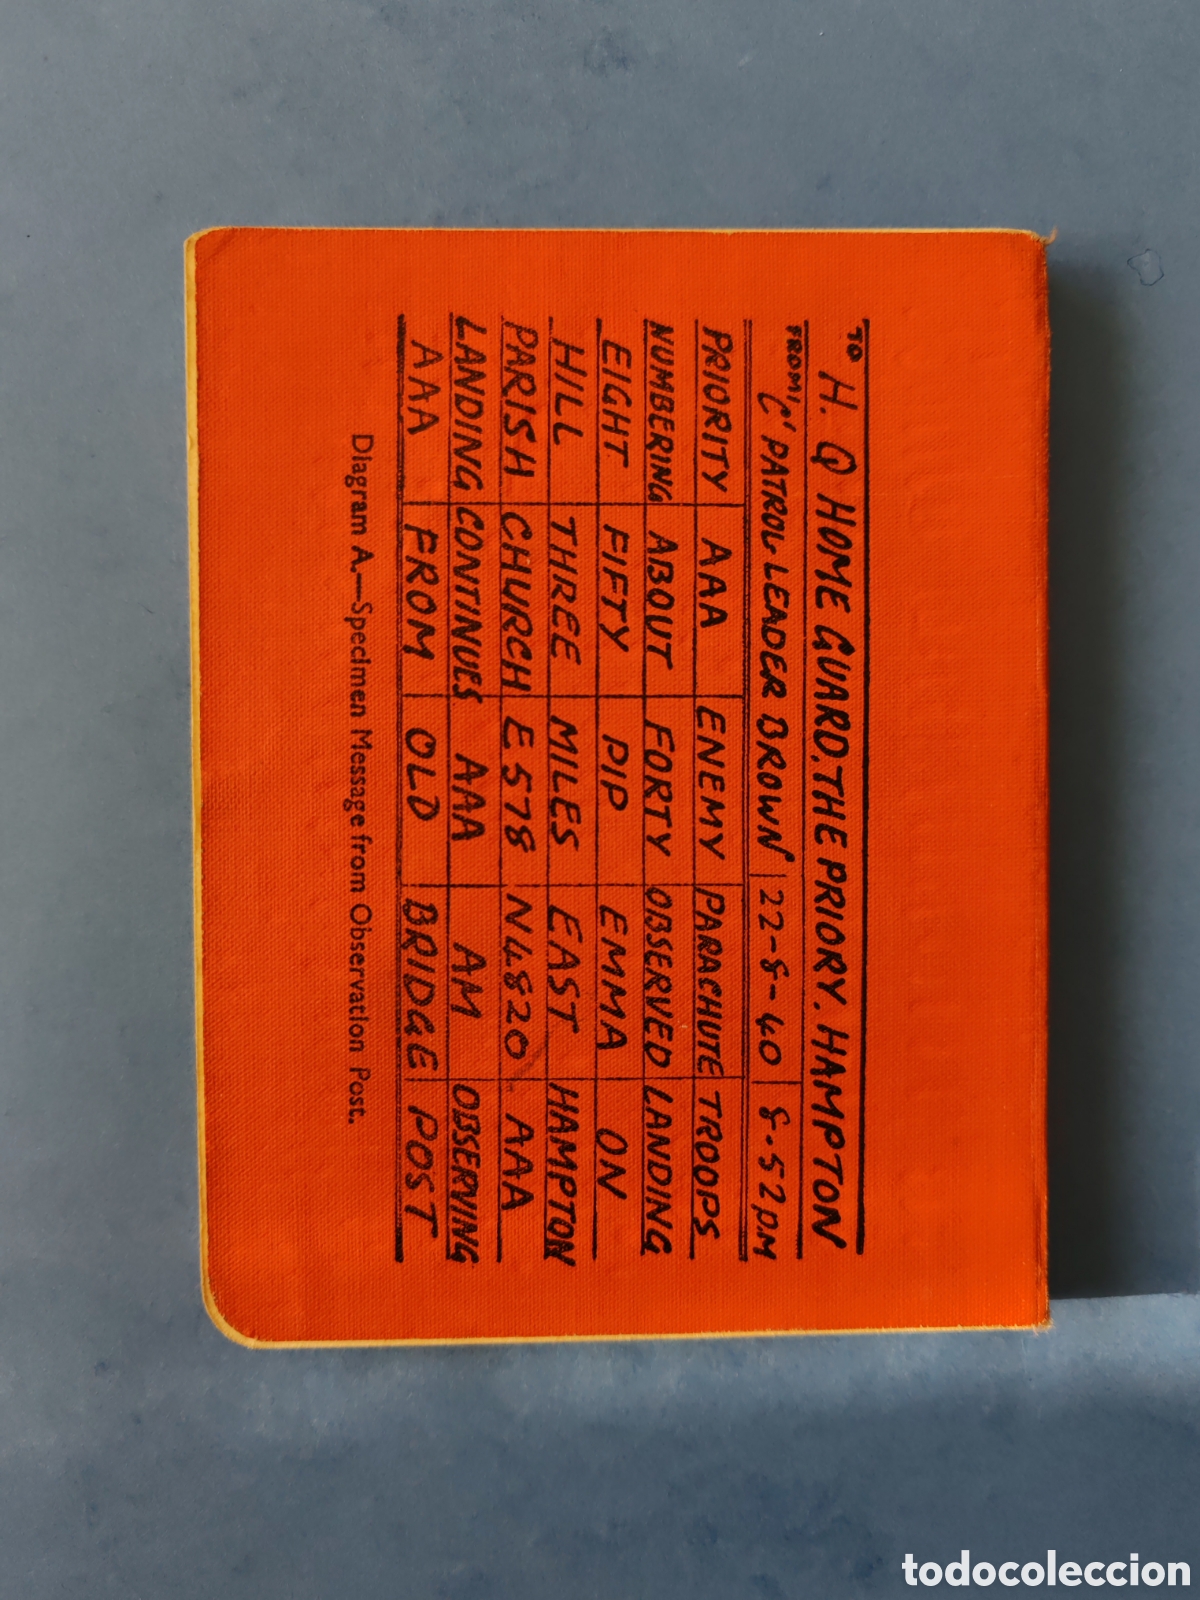 TO H. Q HOME GUARD, THE PRIORY. HAMPTON
FROM, 'C' PATROL LEADER BROWN 22-8-40 8.52 P.M
PRIORITY AAA ENEMY PARACHUTE TROOPS
NUMBERING ABOUT FORTY OBSERVED LANDING
EIGHT FIFTY PIP EMMA ON
HILL THREE MILES EAST HAMPTON
PARISH CHURCH E578 N4820. AAA
LANDING CONTINUES AAA AM OBSERVING
AAA FROM OLD BRIDGE POST
Diagram A.—Specimen Message from Observation Post.
todocoleccion